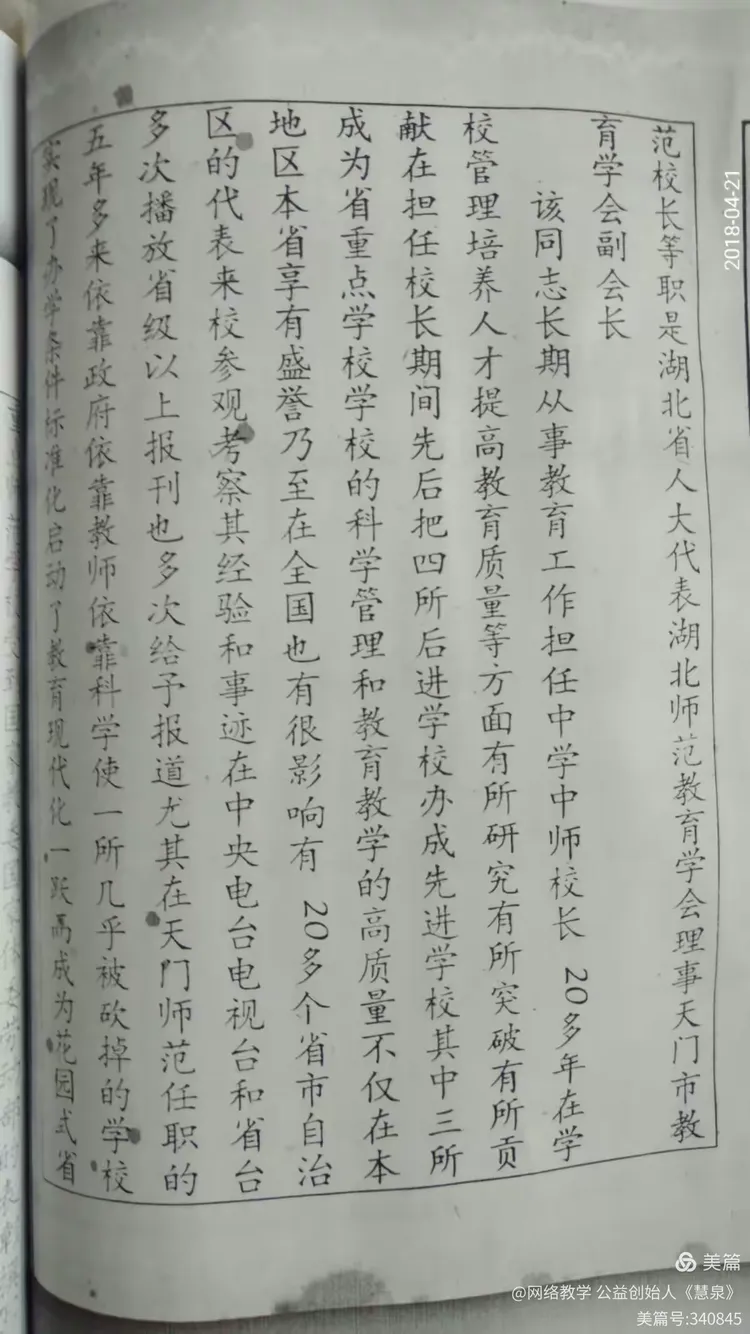 范校长等职是湖北省人大代表湖北师范教育学会理事天门市教
育学会副会长
该同志长期从事教育工作担任中学中师校长 20多年在学
校管理培养人才提高教育质量等方面有所研究有所突破有所贡
献在担任校长期间先后把四所后进学校办成先进学校其中三所
成为省重点学校学校的科学管理和教育教学的高质量不仅在本
地区本省享有盛誉乃至在全国也有很影响有 20多个省市自治
区的代表来校参观考察其经验和事迹在中央电台电视台和省台
多次播放省级以上报刊也多次给予报道尤其在天门师范任职的
五年多来依靠政府依靠教师依靠科学使一所几乎被砍掉的学校
实现了办学条件标准化启动了教育现代化一跃而成为花园式省
2018-04-21
美篇
@网络教学 公益创始人《慧泉》
美篇号:340845